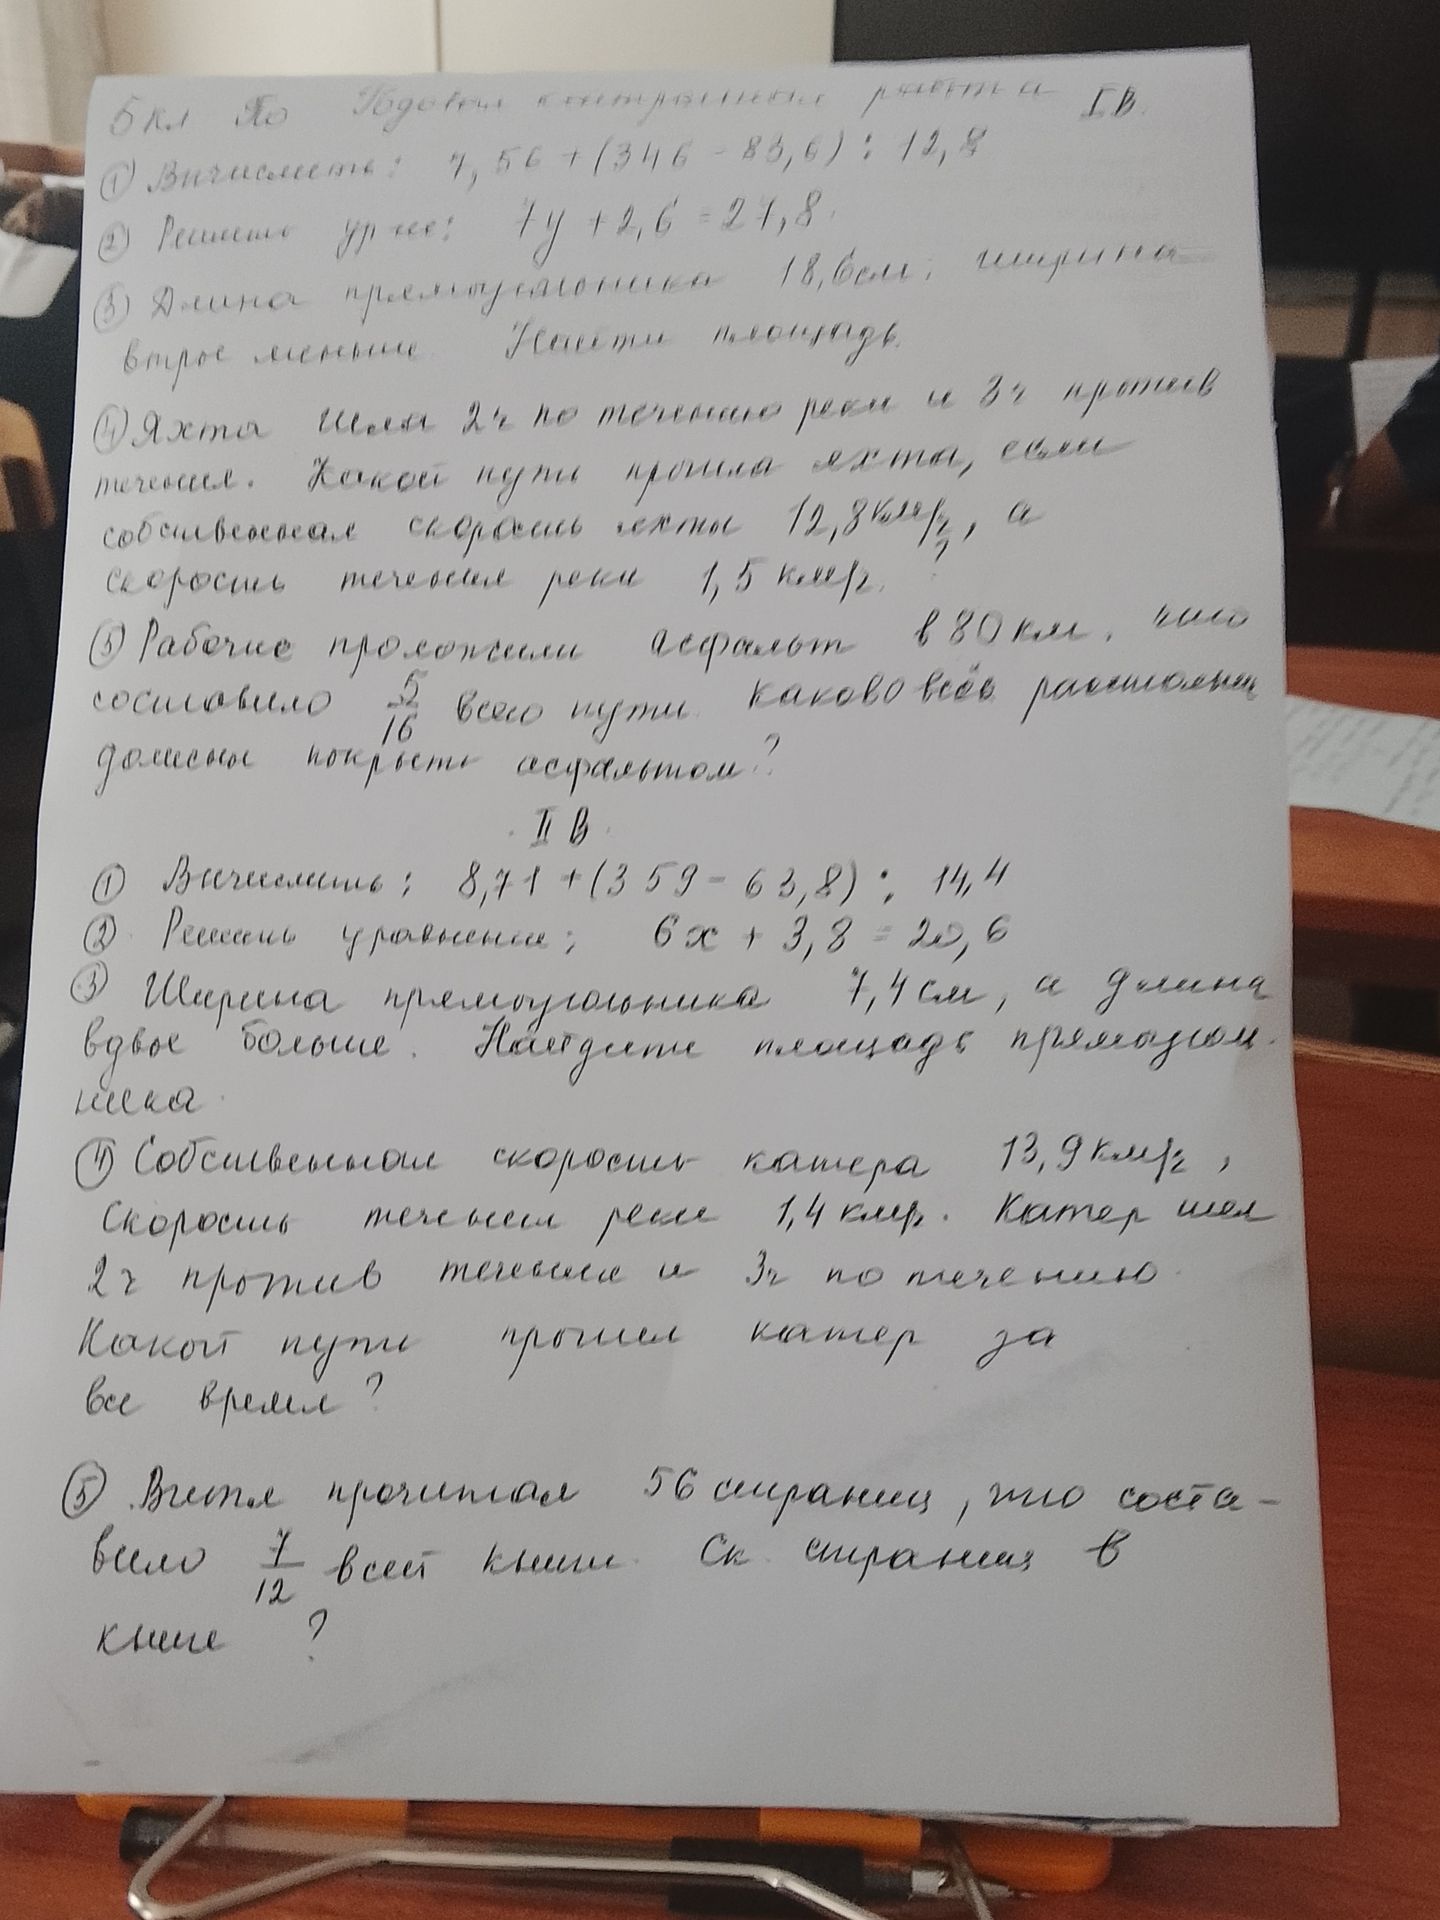 5 кл По Годовая контрольная работа I В.
① Вычислить: 7,56 + (346 - 83,6) : 12,8
② Решить ур-ие: 7y + 2,6 = 27,8.
③ Длина прямоугольника 18,6 см, ширина
втрое меньше. Найти площадь.
④ Яхта шла 2 ч по течению реки и 3 ч против
течения. Какой путь прошла яхта, если
собственная скорость яхты 12,8 км/ч, а
скорость течения реки 1,5 км/ч. ?
⑤ Рабочие проложили асфальт в 80 км, что
составило 5/16 всего пути. Каково всё расстояние
должны покрыть асфальтом?
II В.
① Вычислить: 8,71 + (359 - 63,8) : 14,4
② Решить уравнение: 6x + 3,8 = 20,6
③ Ширина прямоугольника 7,4 см, а длина
вдвое больше. Найдите площадь прямоугол-
ника.
④ Собственная скорость катера 13,9 км/ч,
скорость течения реки 1,4 км/ч. Катер шел
2 ч против течения и 3 ч по течению.
Какой путь прошел катер за
все время?
⑤ Витя прочитал 56 страниц, что соста-
вило 7/12 всей книги. Ск. страниц в
книге ?